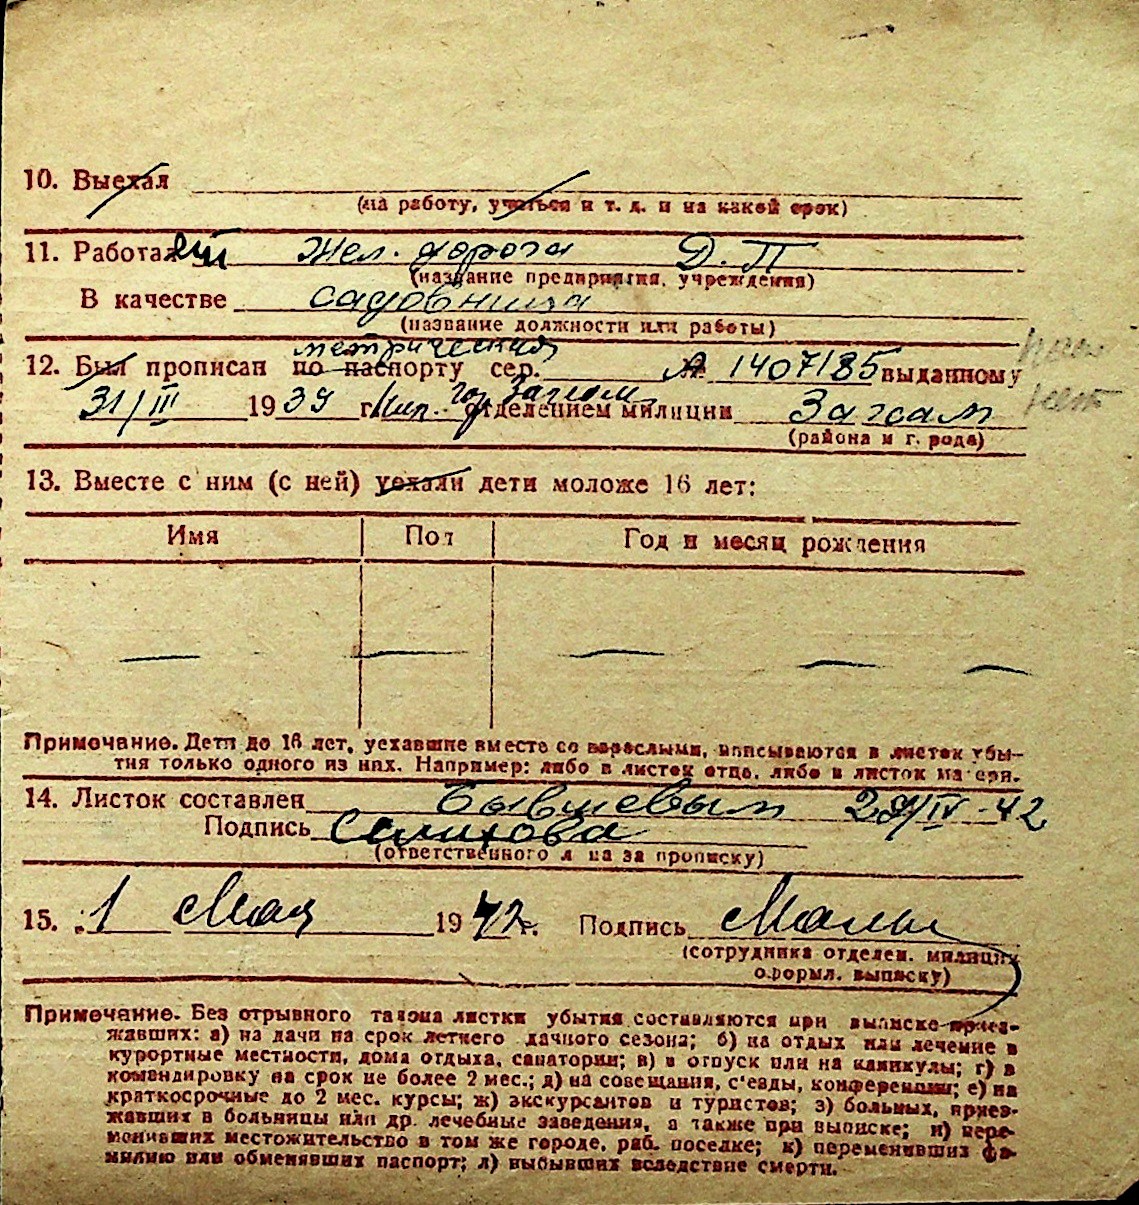 10. Выехал
(на работу, учиться и т. д. и на какой срок)
11. Работает Жел. дорога Д.П
(название предприятия, учреждения)
В качестве садовница
(название должности или работы)
метрическая
12. Был прописан по паспорту сер. № 140785 выданному
31/III 1939 г. гор. Загсом отделением милиции Загсом
(района и г. рода)
13. Вместе с ним (с ней) уехали дети моложе 16 лет:
Имя Пол Год и месяц рождения
— — — — —
Примечание. Дети до 16 лет, уехавшие вместе со взрослыми, вписываются в листок убы-
тия только одного из них. Например: либо в листок отца, либо в листок матери.
14. Листок составлен Бывшевым 29/IV-42
Подпись
(ответственного л ца за прописку)
15. 1 Мая 1942 г. Подпись
(сотрудника отделен. милиции
оформл. выписку)
Примечание. Без отрывного талона листки убытия составляются при выписке приез-
жавших: а) на дачи на срок летнего дачного сезона; б) на отдых или лечение в
курортные местности, дома отдыха, санатории; в) в отпуск или на каникулы; г) в
командировку на срок не более 2 мес.; д) на совещания, с'езды, конференции; е) на
краткосрочные до 2 мес. курсы; ж) экскурсантов и туристов; з) больных, приез-
жавших в больницы или др. лечебные заведения, а также при выписке; и) пере-
менивших местожительство в том же городе, раб. поселке; к) переменивших фа-
милию или обменявших паспорт; л) выбывших вследствие смерти.